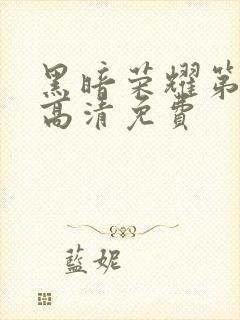 黑暗荣耀第
高清免费
藍妮